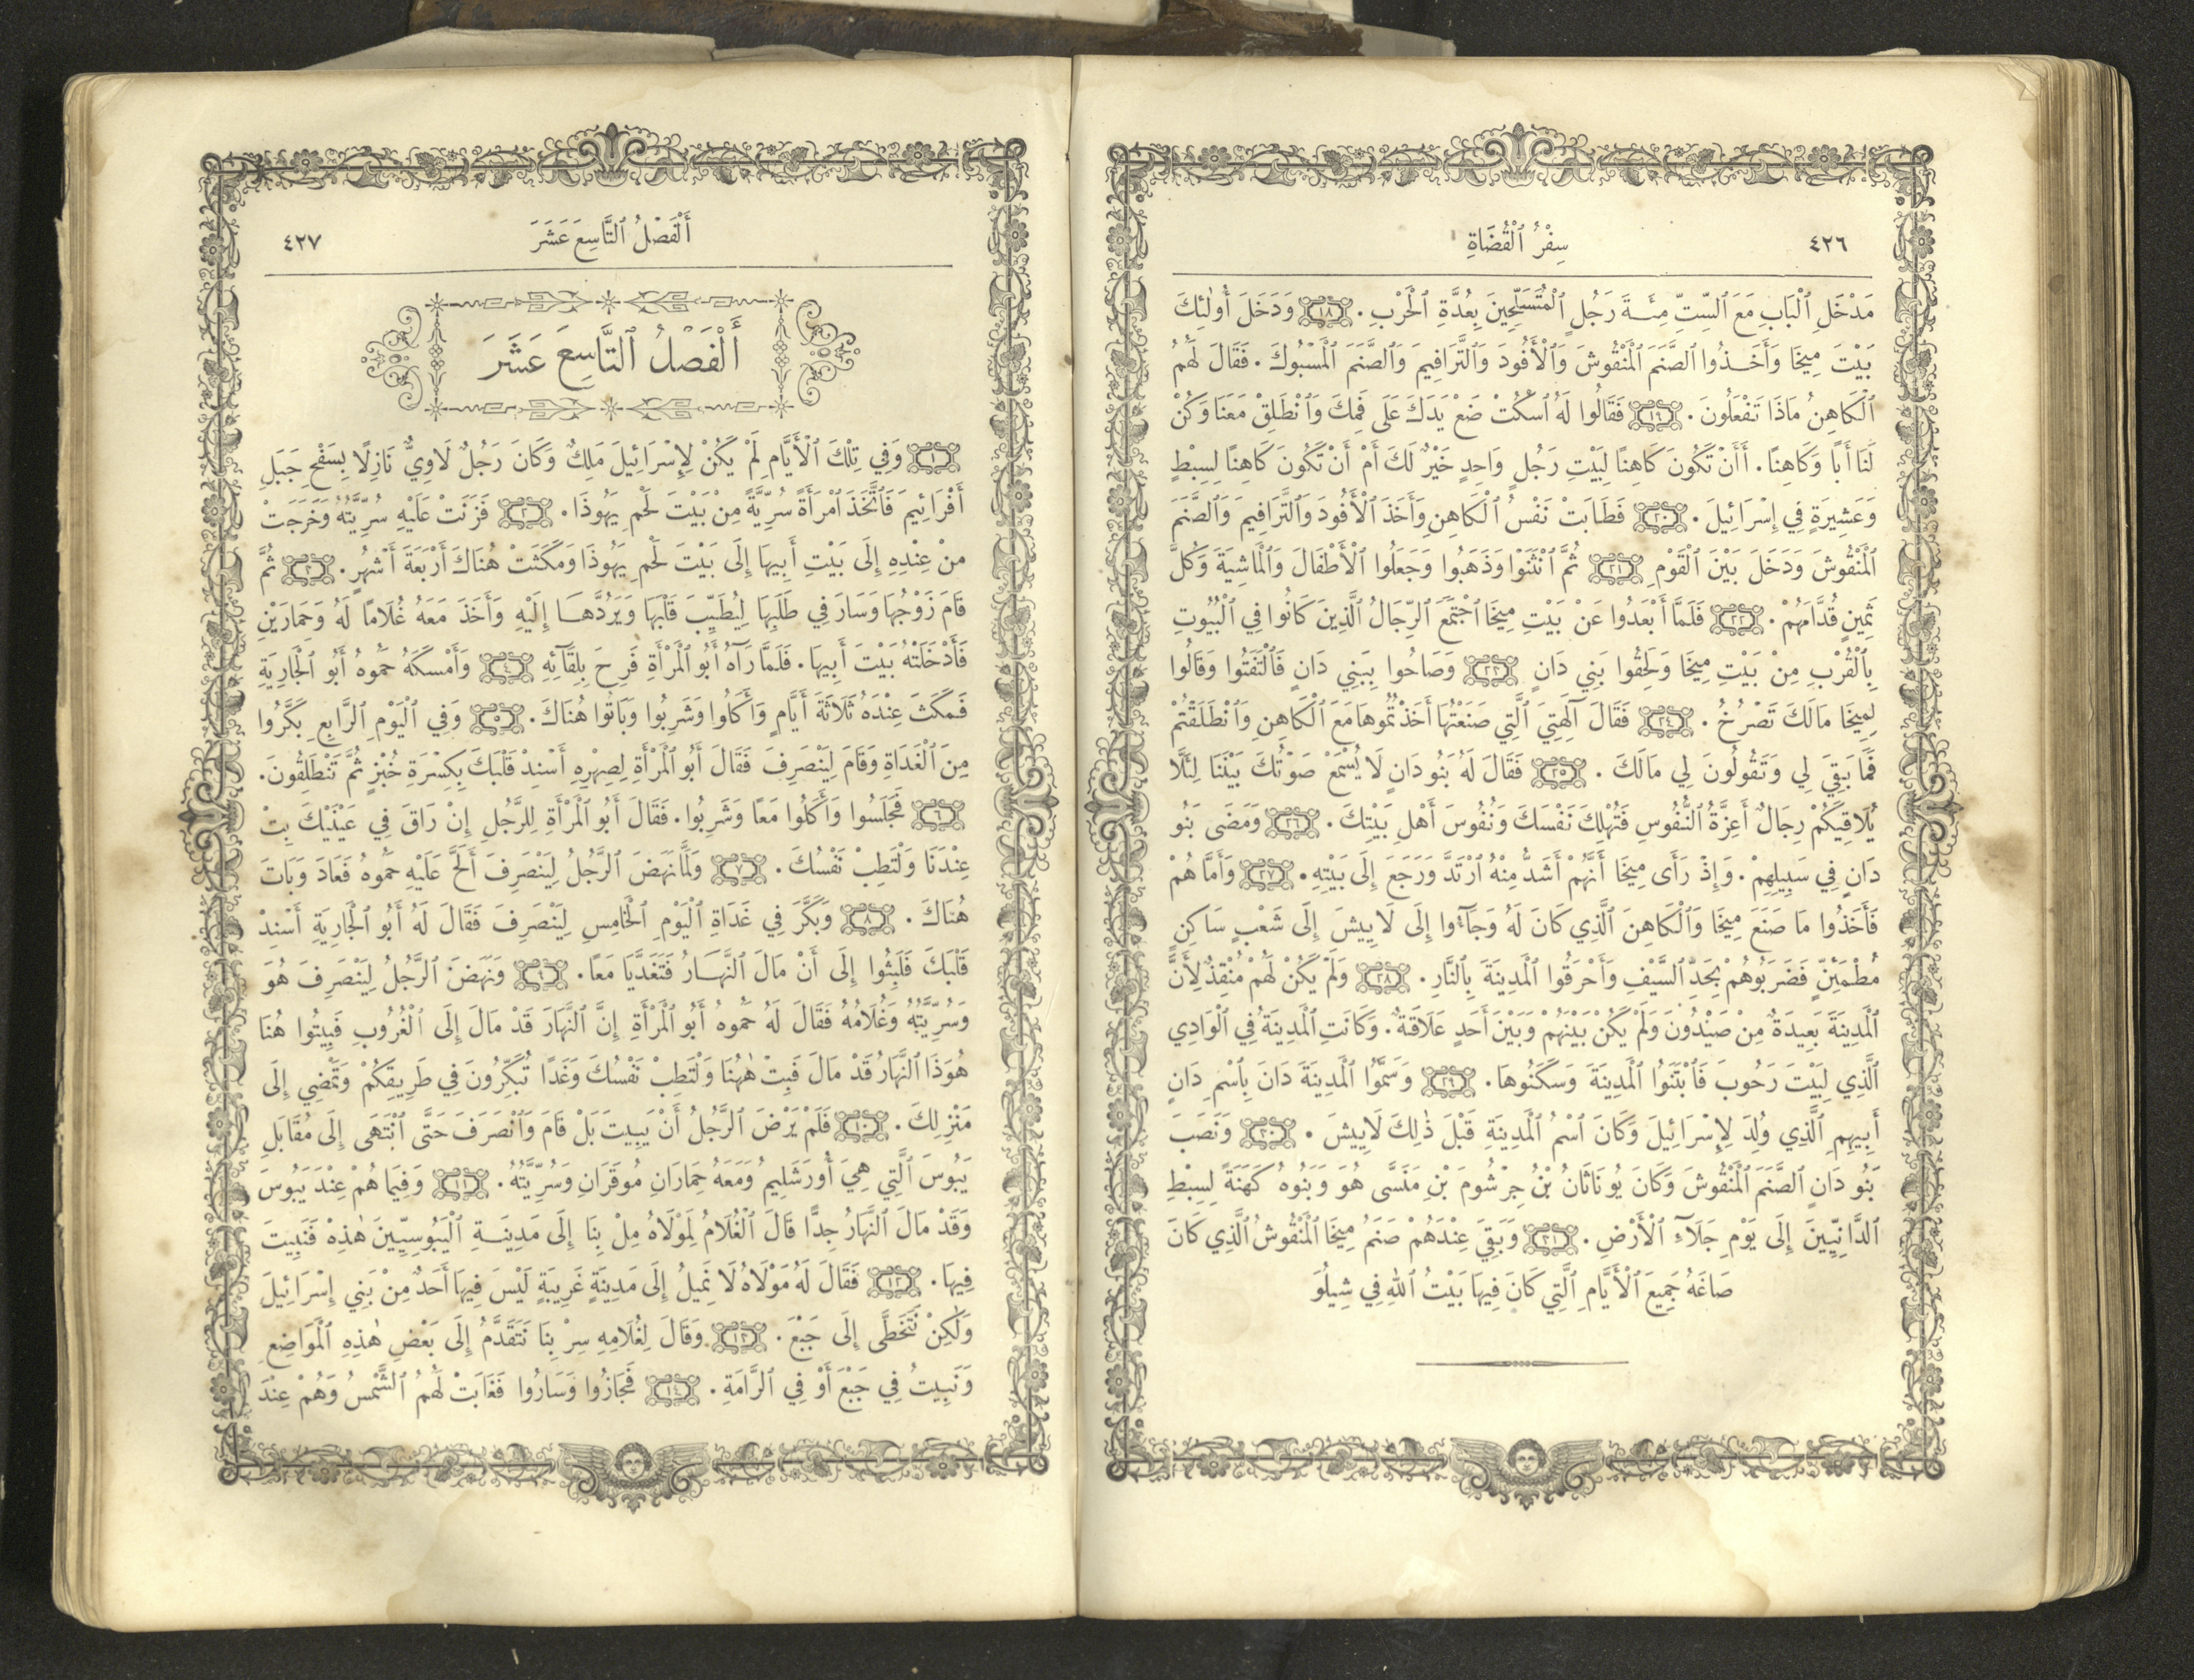 ٤٢٦
سِفْرُ ٱلْقُضَاةِ
مَدْخَلِ ٱلْبَابِ مَعَ ٱلسِّتِّ مِئَةَ رَجُلٍ ٱلْمُتَسَلِّحِينَ بِعُدَّةِ ٱلْحَرْبِ . ١٨ وَدَخَلَ أُولٰئِكَ
بَيْتَ مِيخَا وَأَخَذُوا ٱلصَّنَمَ ٱلْمَنْقُوشَ وَٱلْأَفُودَ وَٱلتَّرَافِيمَ وَٱلصَّنَمَ ٱلْمَسْبُوكَ . فَقَالَ لَهُمُ
ٱلْكَاهِنُ مَاذَا تَفْعَلُونَ . ١٩ فَقَالُوا لَهُ ٱسْكُتْ ضَعْ يَدَكَ عَلَى فَمِكَ وَٱنْطَلِقْ مَعَنَا وَكُنْ
لَنَا أَبًا وَكَاهِنًا . أَأَنْ تَكُونَ كَاهِنًا لِبَيْتِ رَجُلٍ وَاحِدٍ خَيْرٌ لَكَ أَمْ أَنْ تَكُونَ كَاهِنًا لِسِبْطٍ
وَعَشِيرَةٍ فِي إِسْرَائِيلَ . ٢٠ فَطَابَتْ نَفْسُ ٱلْكَاهِنِ وَأَخَذَ ٱلْأَفُودَ وَٱلتَّرَافِيمَ وَٱلصَّنَمَ
ٱلْمَنْقُوشَ وَدَخَلَ بَيْنَ ٱلْقَوْمِ ٢١ ثُمَّ ٱنْثَنَوْا وَذَهَبُوا وَجَعَلُوا ٱلْأَطْفَالَ وَٱلْمَاشِيَةَ وَكُلَّ
ثَمِينٍ قُدَّامَهُمْ . ٢٢ فَلَمَّا أَبْعَدُوا عَنْ بَيْتِ مِيخَا ٱجْتَمَعَ ٱلرِّجَالُ ٱلَّذِينَ كَانُوا فِي ٱلْبُيُوتِ
بِٱلْقُرْبِ مِنْ بَيْتِ مِيخَا وَلَحِقُوا بَنِي دَانٍ ٢٣ وَصَاحُوا بِبَنِي دَانٍ فَٱلْتَفَتُوا وَقَالُوا
لِمِيخَا مَالَكَ تَصْرُخُ . ٢٤ فَقَالَ آلِهَتِيَ ٱلَّتِي صَنَعْتُهَا أَخَذْتُمُوهَا مَعَ ٱلْكَاهِنِ وَٱنْطَلَقْتُمْ
فَمَا بَقِيَ لِي وَتَقُولُونَ لِي مَالَكَ . ٢٥ فَقَالَ لَهُ بَنُو دَانٍ لَا يُسْمَعْ صَوْتُكَ بَيْنَنَا لِئَلَّا
يُلَاقِيَكُمْ رِجَالٌ أَعِزَّةُ ٱلنُّفُوسِ فَتُهْلِكَ نَفْسَكَ وَنُفُوسَ أَهْلِ بَيْتِكَ . ٢٦ وَمَضَى بَنُو
دَانٍ فِي سَبِيلِهِمْ . وَإِذْ رَأَى مِيخَا أَنَّهُمْ أَشَدُّ مِنْهُ ٱرْتَدَّ وَرَجَعَ إِلَى بَيْتِهِ . ٢٧ وَأَمَّا هُمْ
فَأَخَذُوا مَا صَنَعَ مِيخَا وَٱلْكَاهِنَ ٱلَّذِي كَانَ لَهُ وَجَآءُوا إِلَى لَايِيشَ إِلَى شَعْبٍ سَاكِنٍ
مُطْمَئِنٍّ فَضَرَبُوهُمْ بِحَدِّ ٱلسَّيْفِ وَأَحْرَقُوا ٱلْمَدِينَةَ بِٱلنَّارِ . ٢٨ وَلَمْ يَكُنْ لَهُمْ مُنْقِذٌ لِأَنَّ
ٱلْمَدِينَةَ بَعِيدَةٌ مِنْ صَيْدُونَ وَلَمْ يَكُنْ بَيْنَهُمْ وَبَيْنَ أَحَدٍ عَلَاقَةٌ . وَكَانَتِ ٱلْمَدِينَةُ فِي ٱلْوَادِي
ٱلَّذِي لِبَيْتَ رَحُوبَ فَٱبْتَنَوُا ٱلْمَدِينَةَ وَسَكَنُوهَا . ٢٩ وَسَمَّوُا ٱلْمَدِينَةَ دَانَ بِٱسْمِ دَانٍ
أَبِيهِمِ ٱلَّذِي وُلِدَ لِإِسْرَائِيلَ وَكَانَ ٱسْمُ ٱلْمَدِينَةِ قَبْلَ ذٰلِكَ لَايِيشَ . ٣٠ وَنَصَبَ
بَنُو دَانٍ ٱلصَّنَمَ ٱلْمَنْقُوشَ وَكَانَ يُونَاثَانُ بْنُ جِرْشُومَ بْنِ مَنَسَّى هُوَ وَبَنُوهُ كَهَنَةً لِسِبْطِ
ٱلدَّانِيِّينَ إِلَى يَوْمِ جَلَآءِ ٱلْأَرْضِ . ٣١ وَبَقِيَ عِنْدَهُمْ صَنَمُ مِيخَا ٱلْمَنْقُوشُ ٱلَّذِي كَانَ
صَاغَهُ جَمِيعَ ٱلْأَيَّامِ ٱلَّتِي كَانَ فِيهَا بَيْتُ ٱللهِ فِي شِيلُوَ
أَلْفَصْلُ ٱلتَّاسِعَ عَشَرَ
٤٢٧
أَلْفَصْلُ ٱلتَّاسِعَ عَشَرَ
١ وَفِي تِلْكَ ٱلْأَيَّامِ لَمْ يَكُنْ لِإِسْرَائِيلَ مَلِكٌ وَكَانَ رَجُلٌ لَاوِيٌّ نَازِلًا بِسَفْحِ جَبَلِ
أَفْرَائِيمَ فَٱتَّخَذَ ٱمْرَأَةً سُرِّيَّةً مِنْ بَيْتَ لَحْمِ يَهُوذَا . ٢ فَزَنَتْ عَلَيْهِ سُرِّيَّتُهُ وَخَرَجَتْ
مِنْ عِنْدِهِ إِلَى بَيْتِ أَبِيهَا إِلَى بَيْتَ لَحْمِ يَهُوذَا وَمَكَثَتْ هُنَاكَ أَرْبَعَةَ أَشْهُرٍ . ٣ ثُمَّ
قَامَ زَوْجُهَا وَسَارَ فِي طَلَبِهَا لِيُطَيِّبَ قَلْبَهَا وَيَرُدَّهَا إِلَيْهِ وَأَخَذَ مَعَهُ غُلَامًا لَهُ وَحِمَارَيْنِ
فَأَدْخَلَتْهُ بَيْتَ أَبِيهَا . فَلَمَّا رَآهُ أَبُو ٱلْمَرْأَةِ فَرِحَ بِلِقَآئِهِ ٤ وَأَمْسَكَهُ حَمُوهُ أَبُو ٱلْجَارِيَةِ
فَمَكَثَ عِنْدَهُ ثَلَاثَةَ أَيَّامٍ وَأَكَلُوا وَشَرِبُوا وَبَاتُوا هُنَاكَ . ٥ وَفِي ٱلْيَوْمِ ٱلرَّابِعِ بَكَّرُوا
مِنَ ٱلْغَدَاةِ وَقَامَ لِيَنْصَرِفَ فَقَالَ أَبُو ٱلْمَرْأَةِ لِصِهْرِهِ أَسْنِدْ قَلْبَكَ بِكِسْرَةِ خُبْزٍ ثُمَّ تَنْطَلِقُونَ .
٦ فَجَلَسُوا وَأَكَلُوا مَعًا وَشَرِبُوا . فَقَالَ أَبُو ٱلْمَرْأَةِ لِلرَّجُلِ إِنْ رَاقَ فِي عَيْنَيْكَ بِتْ
عِنْدَنَا وَلْتَطِبْ نَفْسُكَ . ٧ وَلَمَّا نَهَضَ ٱلرَّجُلُ لِيَنْصَرِفَ أَلَحَّ عَلَيْهِ حَمُوهُ فَعَادَ وَبَاتَ
هُنَاكَ . ٨ وَبَكَّرَ فِي غَدَاةِ ٱلْيَوْمِ ٱلْخَامِسِ لِيَنْصَرِفَ فَقَالَ لَهُ أَبُو ٱلْجَارِيَةِ أَسْنِدْ
قَلْبَكَ فَلَبِثُوا إِلَى أَنْ مَالَ ٱلنَّهَارُ فَتَغَدَّيَا مَعًا . ٩ وَنَهَضَ ٱلرَّجُلُ لِيَنْصَرِفَ هُوَ
وَسُرِّيَّتُهُ وَغُلَامُهُ فَقَالَ لَهُ حَمُوهُ أَبُو ٱلْمَرْأَةِ إِنَّ ٱلنَّهَارَ قَدْ مَالَ إِلَى ٱلْغُرُوبِ فَبِيتُوا هُنَا
هُوَذَا ٱلنَّهَارُ قَدْ مَالَ فَبِتْ هٰهُنَا وَلْتَطِبْ نَفْسُكَ وَغَدًا تُبَكِّرُونَ فِي طَرِيقِكُمْ وَتَمْضِي إِلَى
مَنْزِلِكَ . ١٠ فَلَمْ يَرْضَ ٱلرَّجُلُ أَنْ يَبِيتَ بَلْ قَامَ وَٱنْصَرَفَ حَتَّى ٱنْتَهَى إِلَى مُقَابِلِ
يَبُوسَ ٱلَّتِي هِيَ أُورَشَلِيمُ وَمَعَهُ حِمَارَانِ مُوقَرَانِ وَسُرِّيَّتُهُ . ١١ وَفِيمَا هُمْ عِنْدَ يَبُوسَ
وَقَدْ مَالَ ٱلنَّهَارُ جِدًّا قَالَ ٱلْغُلَامُ لِمَوْلَاهُ مِلْ بِنَا إِلَى مَدِينَةِ ٱلْيَبُوسِيِّينَ هٰذِهْ فَنَبِيتَ
فِيهَا . ١٢ فَقَالَ لَهُ مَوْلَاهُ لَا نَمِيلُ إِلَى مَدِينَةٍ غَرِيبَةٍ لَيْسَ فِيهَا أَحَدٌ مِنْ بَنِي إِسْرَائِيلَ
وَلٰكِنْ نَتَخَطَّى إِلَى جَبْعَ . ١٣ وَقَالَ لِغُلَامِهِ سِرْ بِنَا نَتَقَدَّمُ إِلَى بَعْضِ هٰذِهِ ٱلْمَوَاضِعِ
وَنَبِيتُ فِي جَبْعَ أَوْ فِي ٱلرَّامَةِ . ١٤ فَجَازُوا وَسَارُوا فَغَابَتْ لَهُمُ ٱلشَّمْسُ وَهُمْ عِنْدَ